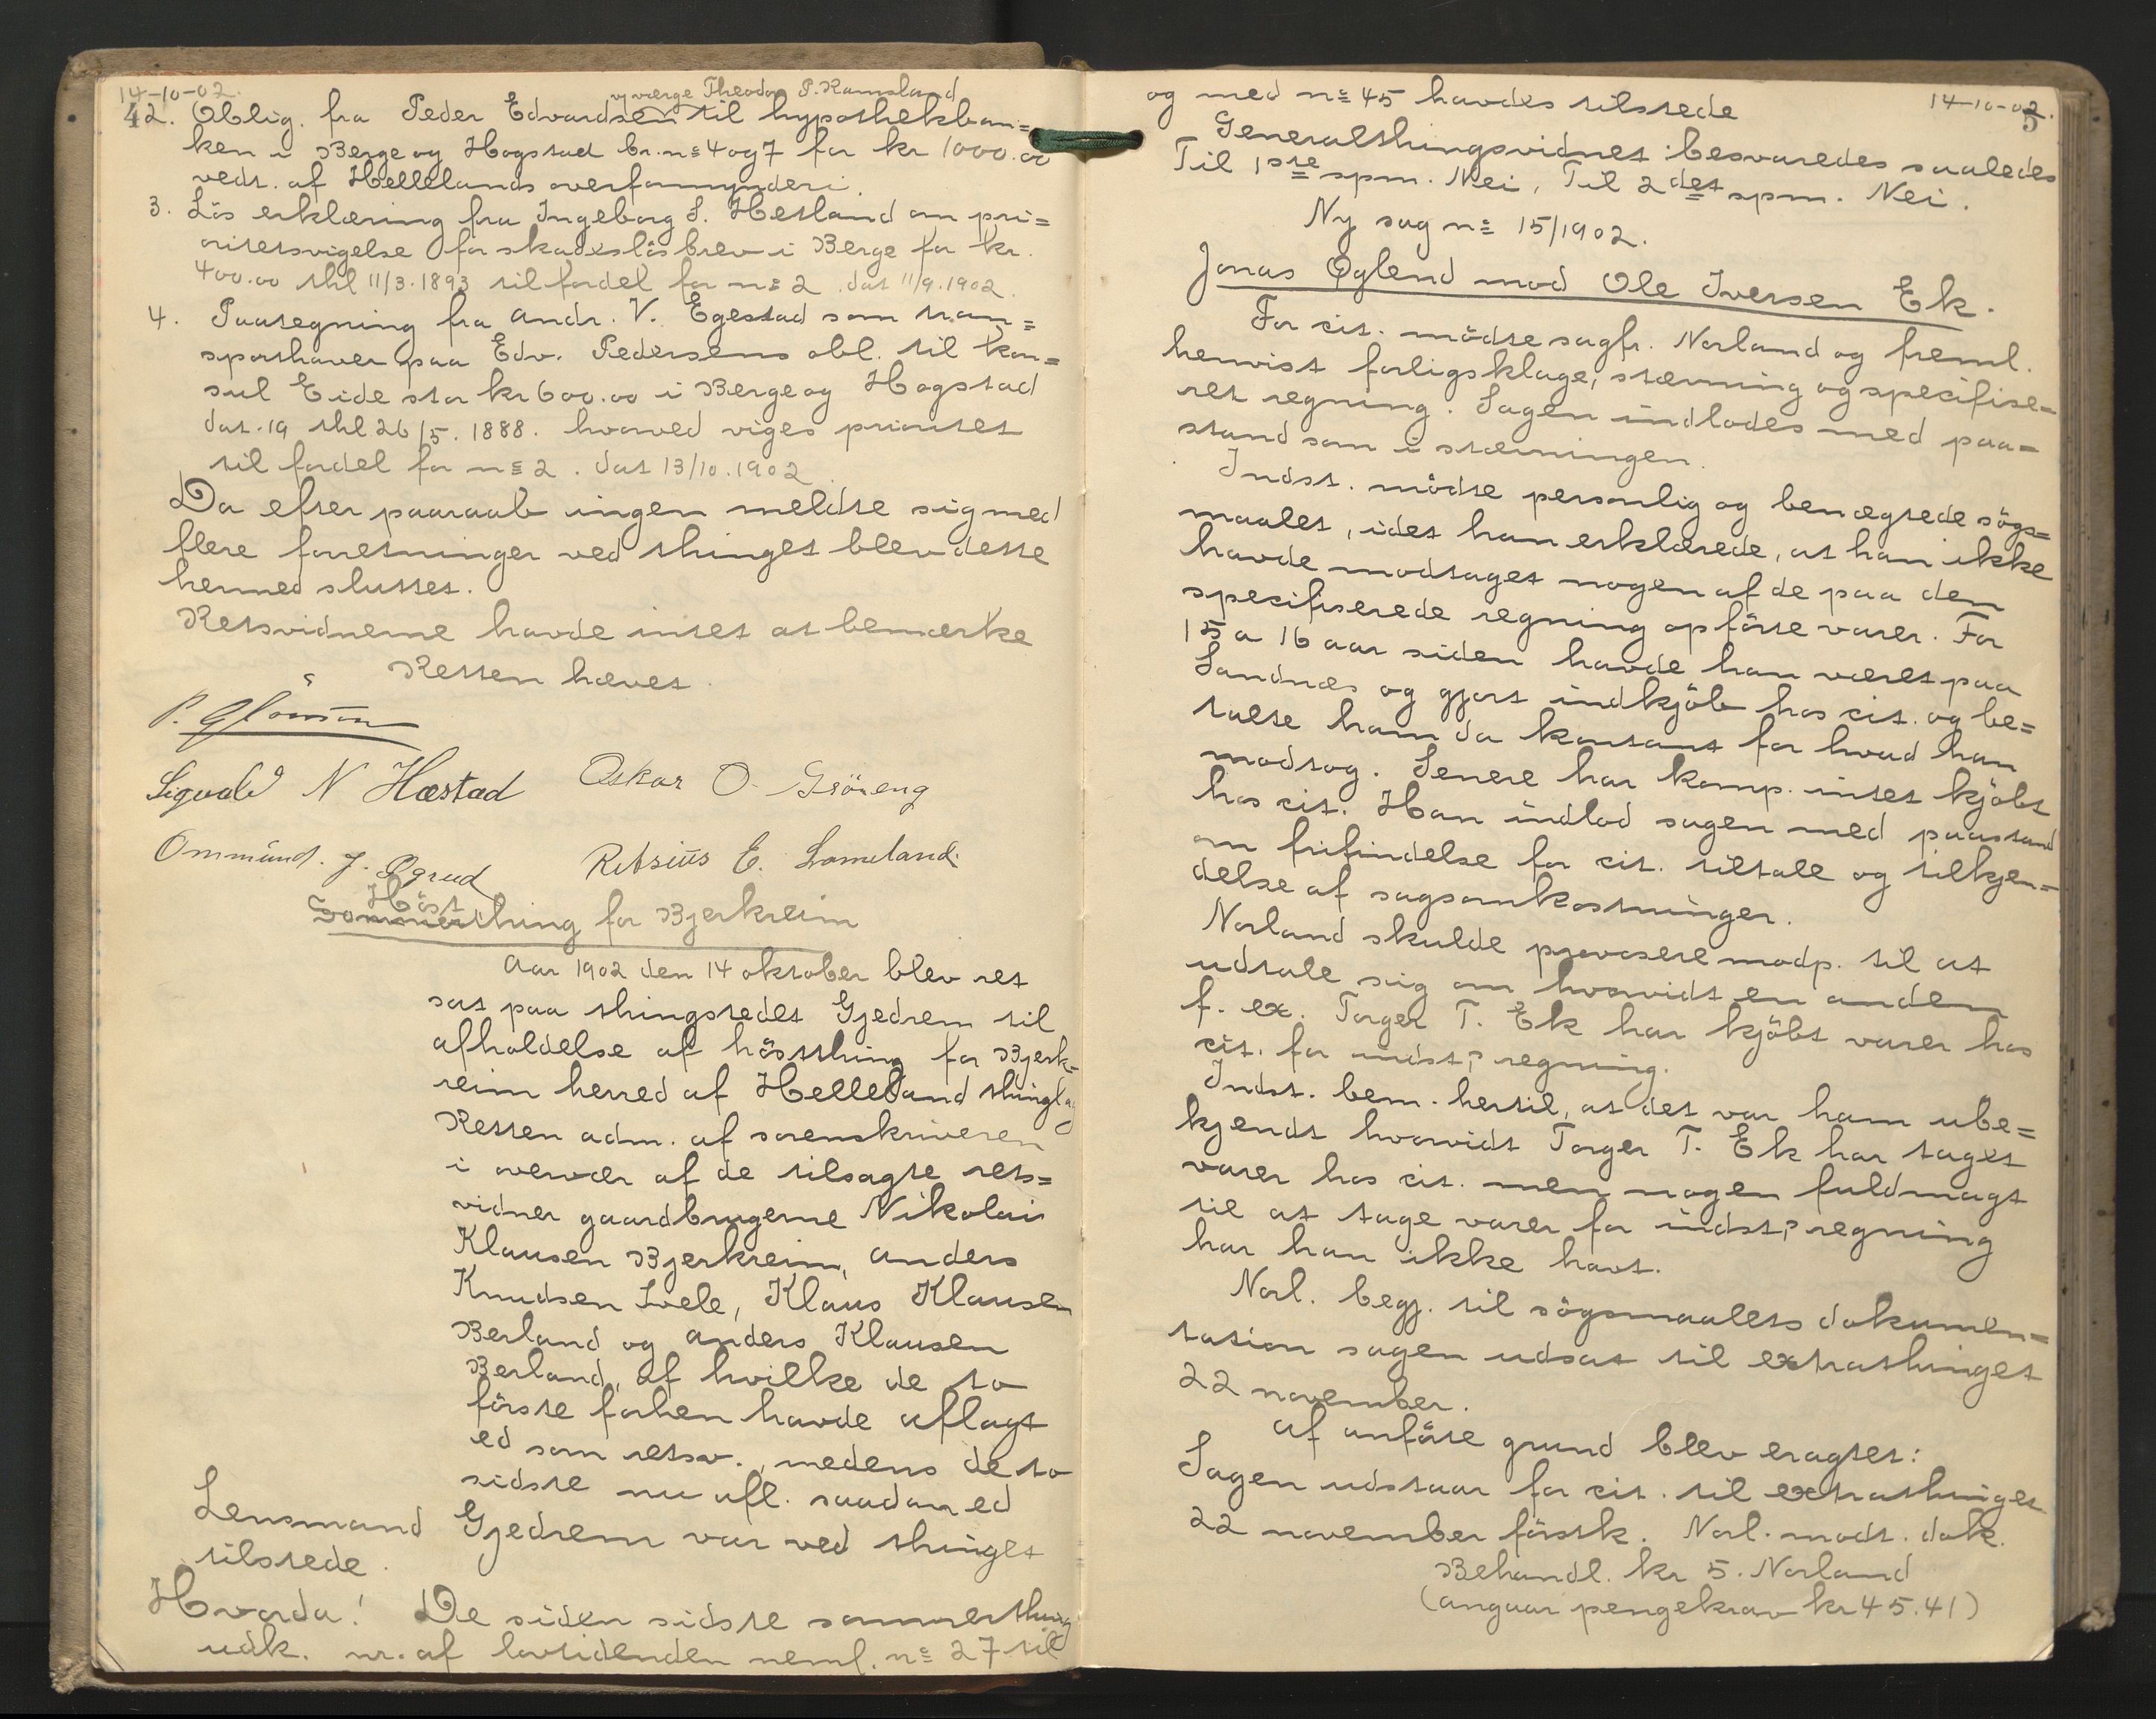 14-10-02.
4
v/værge Theodor P. Ramsland
2. Oblig. fra Peder Edvardsen til hypothekban=
ken i Berge og Hogstad br. no 4 og 7 for kr 1000.00
vedt. af Hellelands overformynderi.
3. Løs erklæring fra Ingeborg S. Hetland om pri=
oritetsvigelse for skadesløsbrev i Berge for kr.
400.00 thl 11/3.1893 til fordel for no 2 dat 11/9.1902.
4. Paategning fra Andr. V. Egestad som tran=
sporthaver paa Edv. Pedersens obl. til kon=
sul Eide stor kr 600.00 i Berge og Hogstad
dat. 19 thl 26/5. 1888. hvorved viges prioritet
til fordel for no 2. dat 13/10.1902
Da efter paaraab ingen meldte sig med
flere forretninger ved thinget blev dette
hermed sluttet.
Retsvidnerne havde intet at bemærke
Retten hævet.
Sigvald N Hæstad Oskar O. Gröreng
Ommund. J. Øgrud Retsius E. Lomeland.
Høst
Sommerthing for Bjerkreim
Aar 1902 den 14 oktober blev ret
sat paa thingstedet Gjedrem til
afholdelse af høstthing for Bjerk=
reim herred af Helleland thinglag
Retten adm. af sorenskriveren
i overvær af de tilsagte rets=
vidner gaardbrugerne Nikolai
Klausen Bjerkreim, Anders
Knudsen Ivele, Klaus Klausen
Berland og Anders Klausen
Berland, af hvilke de to
første forhen havde aflagt
ed som retsv., medens de to
sidste nu afl. saadan ed
Lensmand Gjedrem var ved thinget
tilstede.
Hvorda! De siden sidste sommerthing
udk. nr. af lovtidenden neml. no 27 til
14-10-02.
5
og med no 45 havdes tilstede
Generalthingsvidnet: besvaredes saaledes
Til 1ste spm. Nei, Til 2det spm. Nei.
Ny sag no 15/1902.
Jonas Øglend mod Ole Iversen Ek.
For cit. mødte sagfr. Norland og freml.
henvist forligsklage, stævning og specifise=
ret regning. Sagen indlodes med paa=
stand som i stævningen.
Indst. mødte personlig og benægtede søgs=
maalet, idet han erklærede, at han ikke
havde modtaget nogen af de paa den
specifiserede regning opførte varer. For
15 a 16 aar siden havde han været paa
Sandnæs og gjort indkjøb hos cit. og be=
talte ham da kontant for hvad han
modtog. Senere har komp. intet kjøbt
hos cit. Han indlod sagen med paastand
om frifindelse for cit. tiltale og tilkjen=
delse af sagsomkostninger.
Norland skulde provosere modp. til at
udtale sig om hvorvidt en anden
f. ex. Torger T. Ek har kjøbt varer hos
cit. for indsts regning.
Indst. bem. hertil, at det var ham ube=
kjendt hvorvidt Torger T. Ek har taget
varer hos cit. men nogen fuldmagt
til at tage varer for indsts regning
har han ikke havt.
Norl. begj. til søgsmaalets dokumen=
tation sagen udsat til extrathinget
22 november.
Af anførte grund blev eragtet:
Sagen udstaar for cit. til extrathinget
22 november førstk. Norl. modt. dok.
Behandl. kr 5. Norland
(angaar pengekrav kr 45.41)